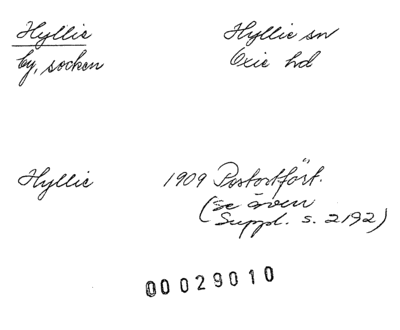 Hyllie
by, socken
Hyllie sn
Oxie hd
Hyllie
1909 Postortfört.
(se även
Suppl. s. 2192)
00029010